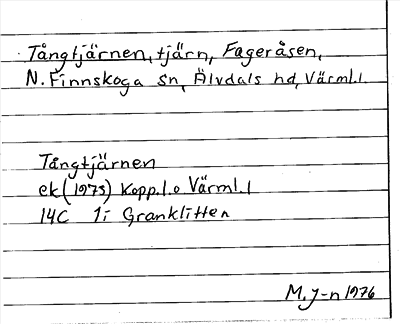 Tångtjärnen, tjärn, Fageråsen,
N. Finnskoga sn, Älvdals hd, Värml.l.
Tångtjärnen
ek (1973) Kopp.l.o Värml.l
14C 1i Granklitten
M. J-n 1976